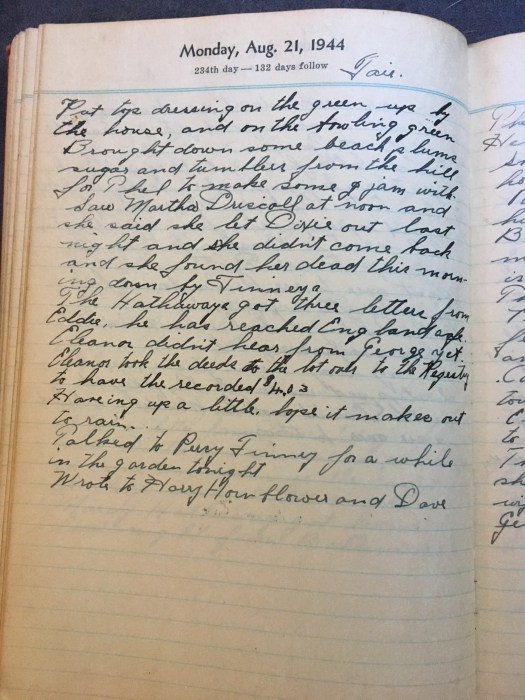 Monday, Aug. 21, 1944
234th day — 132 days follow
Fair.
Put top dressing on the green up by
the house, and on the bowling green
Brought down some beach plums
sugar and tumblers from the hill
for Phel to make some jam with.
Saw Martha Driscoll at noon and
she said she let Dixie out last
night and she didn't come back
and she found her dead this morn-
ing down by Finneys
The Hathaways got three letters from
Eddie, he has reached England safe.
Eleanor didn't hear from George yet.
Eleanor took the deeds to the lot over to the Registry
to have the recorded $4.03
Haveing up a little, hope it makes out
to rain.
Talked to Perry Finney for a while
in the garden tonight
Wrote to Harry Hornblower and Dave